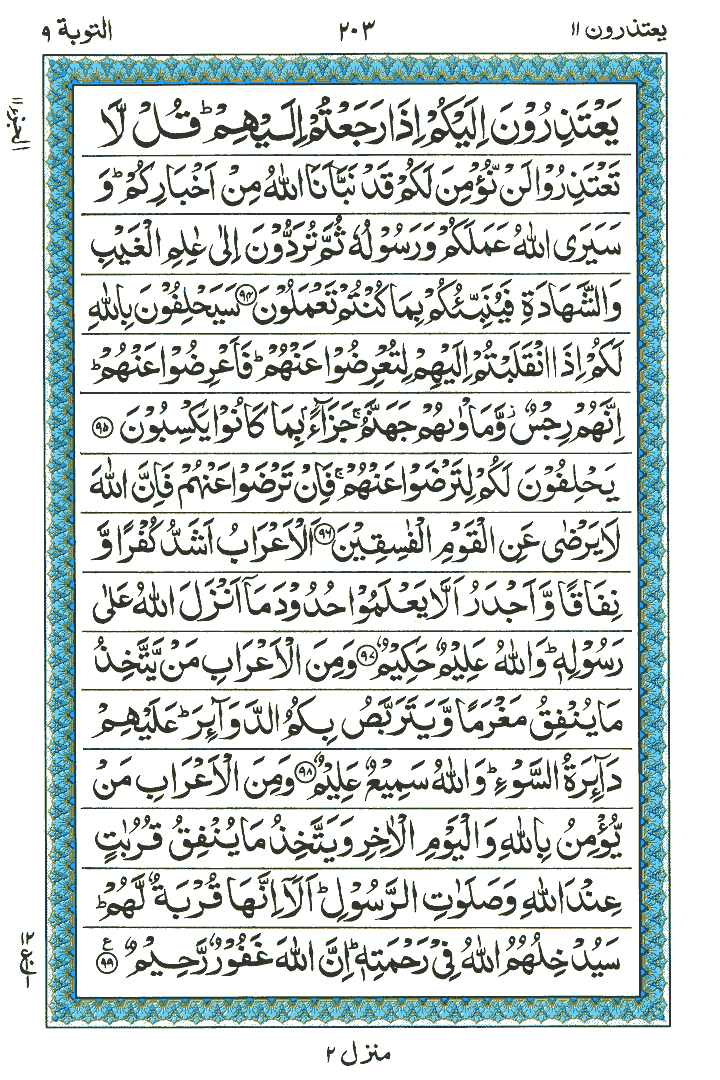 يعتذرون ١١ ٢٠٣ التوبة ٩
الجزء ١١
يَعْتَذِرُوْنَ اِلَيْكُمْ اِذَا رَجَعْتُمْ اِلَيْهِمْ ؕ قُلْ لَّا
تَعْتَذِرُوْا لَنْ نُّؤْمِنَ لَكُمْ قَدْ نَبَّاَنَا اللّٰهُ مِنْ اَخْبَارِكُمْ ؕ وَ
سَيَرَى اللّٰهُ عَمَلَكُمْ وَرَسُوْلُهٗ ثُمَّ تُرَدُّوْنَ اِلٰى عٰلِمِ الْغَيْبِ
وَالشَّهَادَةِ فَيُنَبِّئُكُمْ بِمَا كُنْتُمْ تَعْمَلُوْنَ ۝۹۴ سَيَحْلِفُوْنَ بِاللّٰهِ
لَكُمْ اِذَا انْقَلَبْتُمْ اِلَيْهِمْ لِتُعْرِضُوْا عَنْهُمْ ؕ فَاَعْرِضُوْا عَنْهُمْ ؕ
اِنَّهُمْ رِجْسٌ ز وَّمَاْوٰىهُمْ جَهَنَّمُ ۚ جَزَآءًۢ بِمَا كَانُوْا يَكْسِبُوْنَ ۝۹۵
يَحْلِفُوْنَ لَكُمْ لِتَرْضَوْا عَنْهُمْ ۚ فَاِنْ تَرْضَوْا عَنْهُمْ فَاِنَّ اللّٰهَ
لَا يَرْضٰى عَنِ الْقَوْمِ الْفٰسِقِيْنَ ۝۹۶ اَلْاَعْرَابُ اَشَدُّ كُفْرًا وَّ
نِفَاقًا وَّاَجْدَرُ اَلَّا يَعْلَمُوْا حُدُوْدَ مَاۤ اَنْزَلَ اللّٰهُ عَلٰى
رَسُوْلِهٖ ؕ وَاللّٰهُ عَلِيْمٌ حَكِيْمٌ ۝۹۷ وَمِنَ الْاَعْرَابِ مَنْ يَّتَّخِذُ
مَا يُنْفِقُ مَغْرَمًا وَّيَتَرَبَّصُ بِكُمُ الدَّوَآئِرَ ؕ عَلَيْهِمْ
دَآئِرَةُ السَّوْءِ ؕ وَاللّٰهُ سَمِيْعٌ عَلِيْمٌ ۝۹۸ وَمِنَ الْاَعْرَابِ مَنْ
يُّؤْمِنُ بِاللّٰهِ وَالْيَوْمِ الْاٰخِرِ وَيَتَّخِذُ مَا يُنْفِقُ قُرُبٰتٍ
عِنْدَ اللّٰهِ وَصَلَوٰتِ الرَّسُوْلِ ؕ اَلَاۤ اِنَّهَا قُرْبَةٌ لَّهُمْ ؕ
سَيُدْخِلُهُمُ اللّٰهُ فِيْ رَحْمَتِهٖ ؕ اِنَّ اللّٰهَ غَفُوْرٌ رَّحِيْمٌ ۝۹۹ ع
١٢
ع
١
منزل ٢